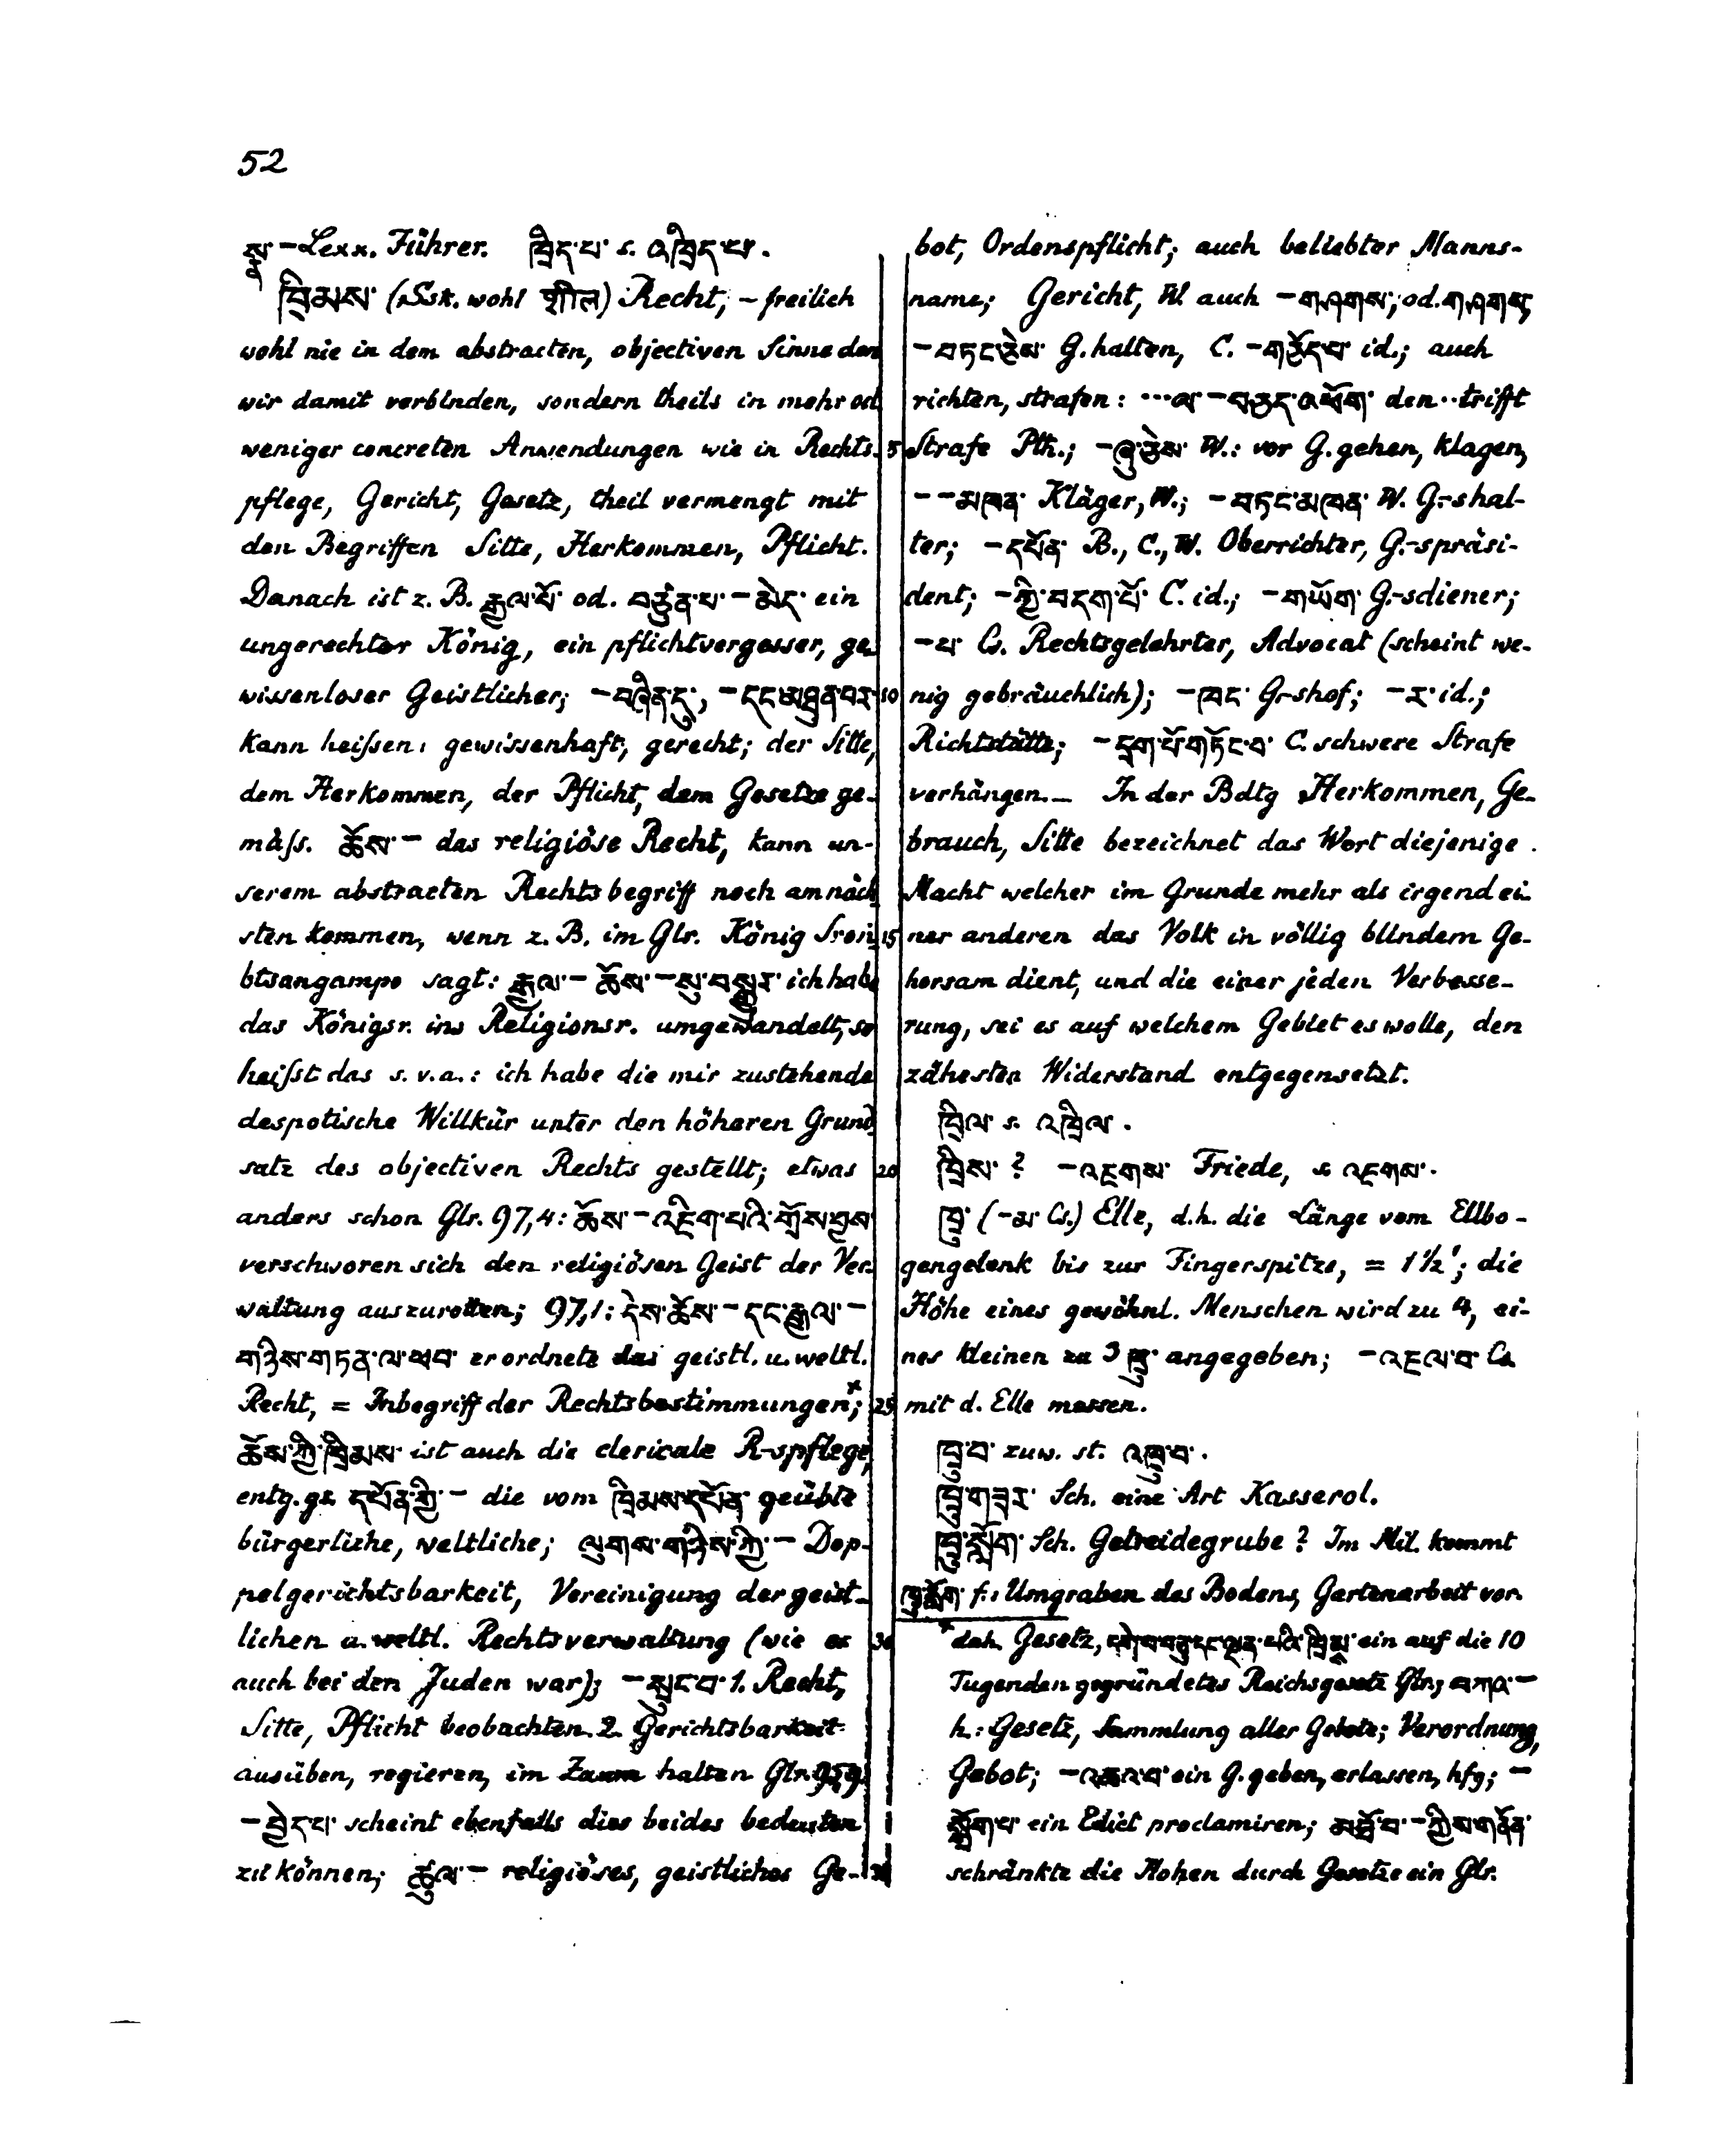 52
སྣ་ – Lexx. Führer. ཁྲིད་པ་ s. འཁྲིད་པ་.
ཁྲིམས་ (Ssk. wohl शील) Recht, – freilich
wohl nie in dem abstracten, objectiven Sinne den
wir damit verbinden, sondern theils in mehr od.
weniger concreten Anwendungen wie in Rechts-
pflege, Gericht, Gesetz, theil vermengt mit
den Begriffen Sitte, Herkommen, Pflicht.
Danach ist z. B. རྒྱལ་པོ་ od. བཙུན་པ་ – མེད་ ein
ungerechter König, ein pflichtvergesser, ge-
wissenloser Geistlicher; – བཞིན་དུ་, – དང་མཐུན་པར་
kann heißen: gewissenhaft, gerecht; der Sitte,
dem Herkommen, der Pflicht, dem Gesetze ge-
mäß. ཆོས་ – das religiöse Recht, kann un-
serem abstracten Rechtsbegriff noch am näch-
sten kommen, wenn z. B. im Glr. König Sron
btsangampo sagt: རྒྱལ་ – ཆོས་ – སུ་བསྒྱུར་ ich habe
das Königsr. ins Religionsr. umgewandelt, so
heißt das s. v. a.: ich habe die mir zustehende
despotische Willkür unter den höheren Grund-
satz des objectiven Rechts gestellt; etwas
anders schon Glr. 97,4: ཆོས་ – འཇིག་པའི་གྲོས་བྱས་
verschworen sich den religiösen Geist der Ver-
waltung auszurotten; 97,1: དེས་ཆོས་ – དང་རྒྱལ་ –
གཉིས་གཏན་ལ་ཕབ་ er ordnete das geistl. u. weltl.
Recht, = Inbegriff der Rechtsbestimmungen×;
ཆོས་ཀྱི་ཁྲིམས་ ist auch die clericale R-spflege,
entg. gs. དཔོན་གྱི་ – die vom ཁྲིམས་དཔོན་ geübte
bürgerliche, weltliche; ལུགས་གཉིས་ཀྱི་ – Dop-
pelgerichtsbarkeit, Vereinigung der geist-
lichen u. weltl. Rechtsverwaltung (wie es
auch bei den Juden war); – སྲུང་བ་ 1. Recht,
Sitte, Pflicht beobachten 2. Gerichtsbarkeit
ausüben, regieren, im Zaum halten Glr. 95,9.
– བྱེད་པ་ scheint ebenfalls dies beides bedeuten
zu können; ཚུལ་ – religiöses, geistliches Ge-
5
10
15
20
25
30
bot, Ordenspflicht; auch beliebter Manns-
name; Gericht, W. auch – གཤགས་, od. གཤགས་,
– བཏང་ཅེས་ G. halten, C. – གཅོད་པ་ id.; auch
richten, strafen: ... ལ་ – བཅད་འཕོག་ den .. trifft
Strafe Pth.; – ཞུ་ཅེས་ W.: vor G. gehen, klagen,
– – མཁན་ Kläger, W.; – བཏང་མཁན་ W. G.-shal-
ter; – དཔོན་ B., C., W. Oberrichter, G.-spräsi-
dent; – ཀྱི་བདག་པོ་ C. id.; – གཡོག་ G.-sdiener;
– པ་ Cs. Rechtsgelehrter, Advocat (scheint we-
nig gebräuchlich); – ཁང་ G-shof; – ར་ id.;
Richtstätte; – དྲག་པོ་གཏོང་བ་ C. schwere Strafe
verhängen. – In der Bdtg Herkommen, Ge-
brauch, Sitte bezeichnet das Wort diejenige
Macht welcher im Grunde mehr als irgend ei-
ner anderen das Volk in völlig blindem Ge-
horsam dient, und die einer jeden Verbesse-
rung, sei es auf welchem Gebiet es wolle, den
zähesten Widerstand entgegensetzt.
ཁྲིལ་ s. འཁྲིལ་.
ཁྲིས་ ? – འཇགས་ Friede, s. འཇགས་.
ཁྲུ་ (– མ་ Cs.) Elle, d. h. die Länge vom Ellbo-
gengelenk bis zur Fingerspitze, = 1½'; die
Höhe eines gewöhnl. Menschen wird zu 4, ei-
nes kleinen zu 3 ཁྲུ་ angegeben; – འཇལ་བ་ Cs.
mit d. Elle messen.
ཁྲུ་བ་ zuw. st. འཁྲུ་བ་.
ཁྲུ་གཟར་ Sch. eine Art Kasserol.
ཁྲུ་སློག་ Sch. Getreidegrube? Im Mil. kommt
ཁྲུ་སློག་ f.: Umgraben des Bodens, Gartenarbeit vor.
× dah. Gesetz, དགེ་བ་བཅུ་དང་ལྡན་པའི་ཁྲིམས་ ein auf die 10
Tugenden gegründetes Reichsgesetz Glr.; བཀའ་ –
h.: Gesetz, Sammlung aller Gebote; Verordnung,
Gebot; – འཆའ་བ་ ein G. geben, erlassen, hfg; –
སྒྲོག་པ་ ein Edict proclamiren; མཐོ་བ་ – ཀྱིས་གནོན་
schränkte die Hohen durch Gesetze ein Glr.